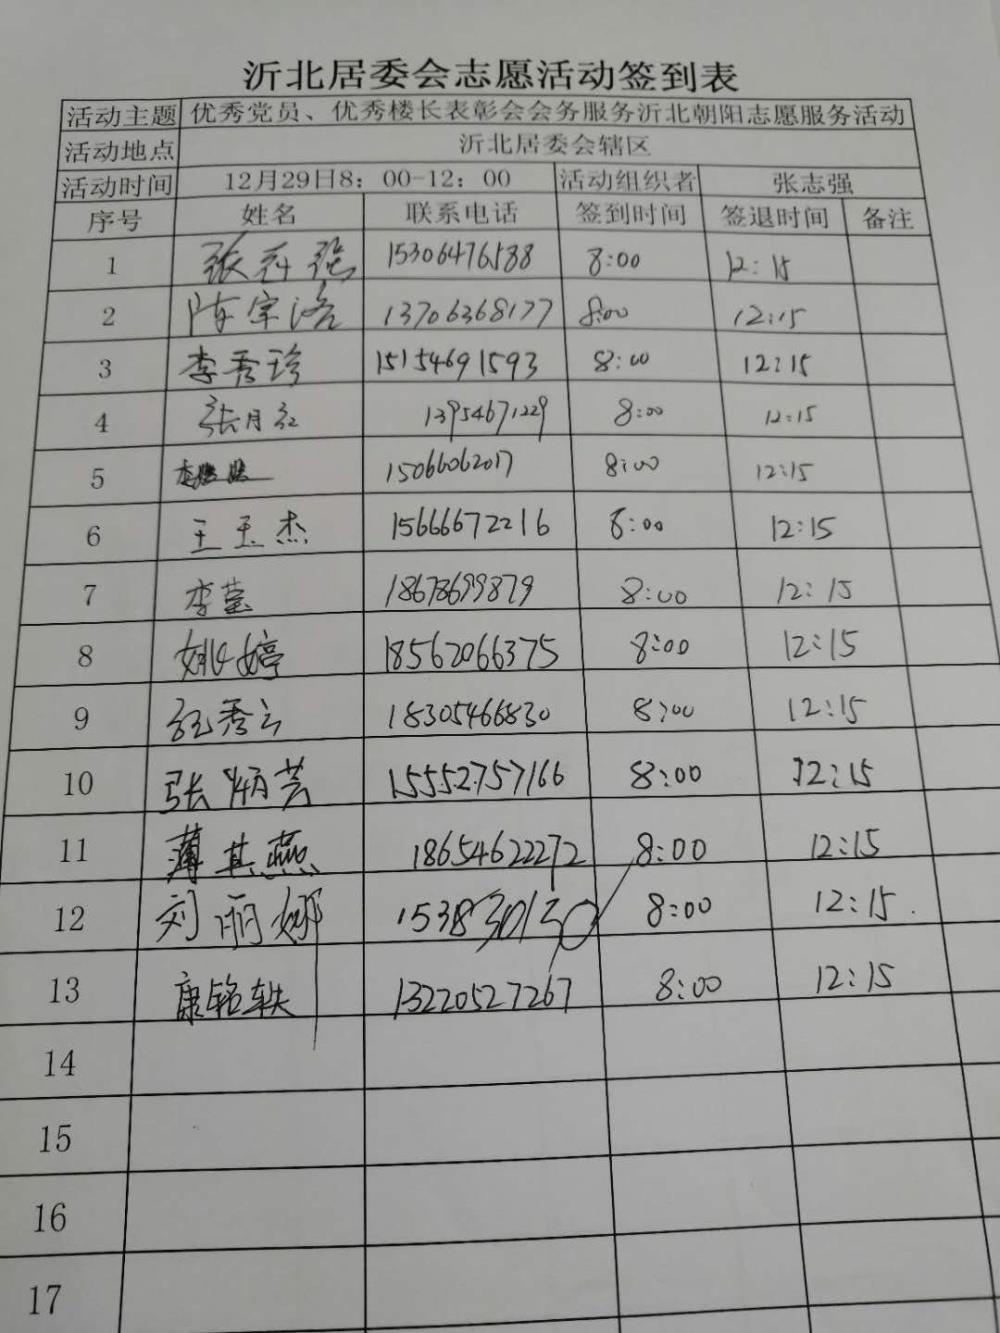 沂北居委会志愿活动签到表
活动主题 优秀党员、优秀楼长表彰会会务服务沂北朝阳志愿服务活动
活动地点 沂北居委会辖区
活动时间 12月29日8：00-12：00 活动组织者 张志强
序号 姓名 联系电话 签到时间 签退时间 备注
1 张志强 15306476588 8:00 12:15
2 陈宗洛 13706368177 8:00 12:15
3 李秀珍 15154691593 8:00 12:15
4 张月红 13954671229 8:00 12:15
5 15066062017 8:00 12:15
6 王玉杰 15666672216 8:00 12:15
7 李莹 18678699879 8:00 12:15
8 姚婷 18562066375 8:00 12:15
9 秀云 18305466830 8:00 12:15
10 张炳芸 15552757166 8:00 12:15
11 薄其燕 18654622272 8:00 12:15
12 刘丽娜 15383030130 8:00 12:15
13 康铭轶 13220527267 8:00 12:15
14
15
16
17